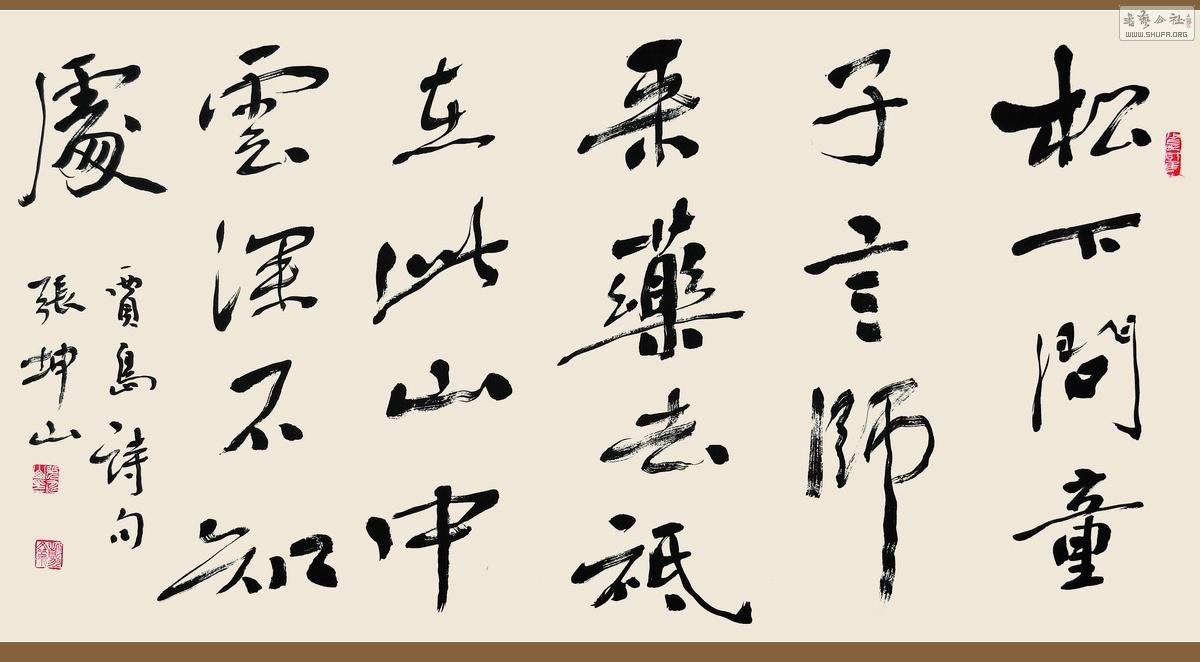 松下問童
子言師
采藥去祗
在此山中
雲深不知
處
賈島詩句
張坤山
WWW.SHUFA.ORG